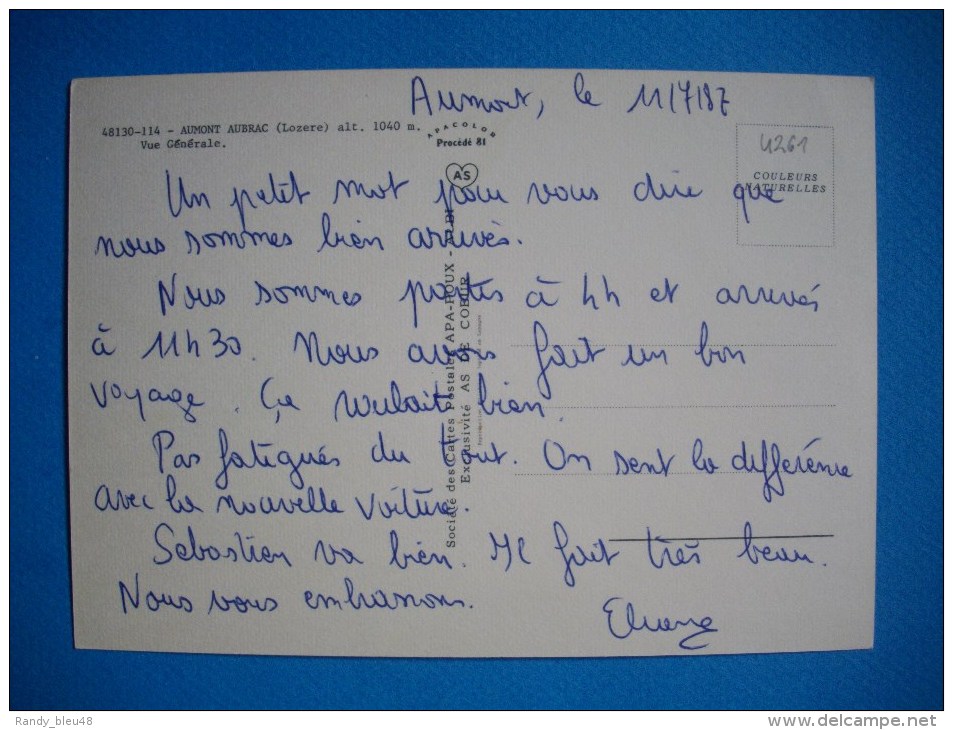 Aumont, le 11/7/87
48130-114 - AUMONT AUBRAC (Lozere) alt. 1040 m.
Vue Générale.
APACOLOR
Procédé 81
AS
4261
COULEURS
NATURELLES
Un petit mot pour vous dire que
nous sommes bien arrivés.
Nous sommes partis à 4h et arrivés
à 11h30. Nous avons fait un bon
voyage. Ça roulait bien.
Pas fatigués du tout. On sent la différence
avec la nouvelle voiture.
Sebastien va bien. Il fait très beau.
Nous vous embrassons.
Eliane
Société des Cartes Postales APA-POUX - ALBI
Exclusivité AS DE COEUR
Randy_bleu48
http://www.delcampe.net